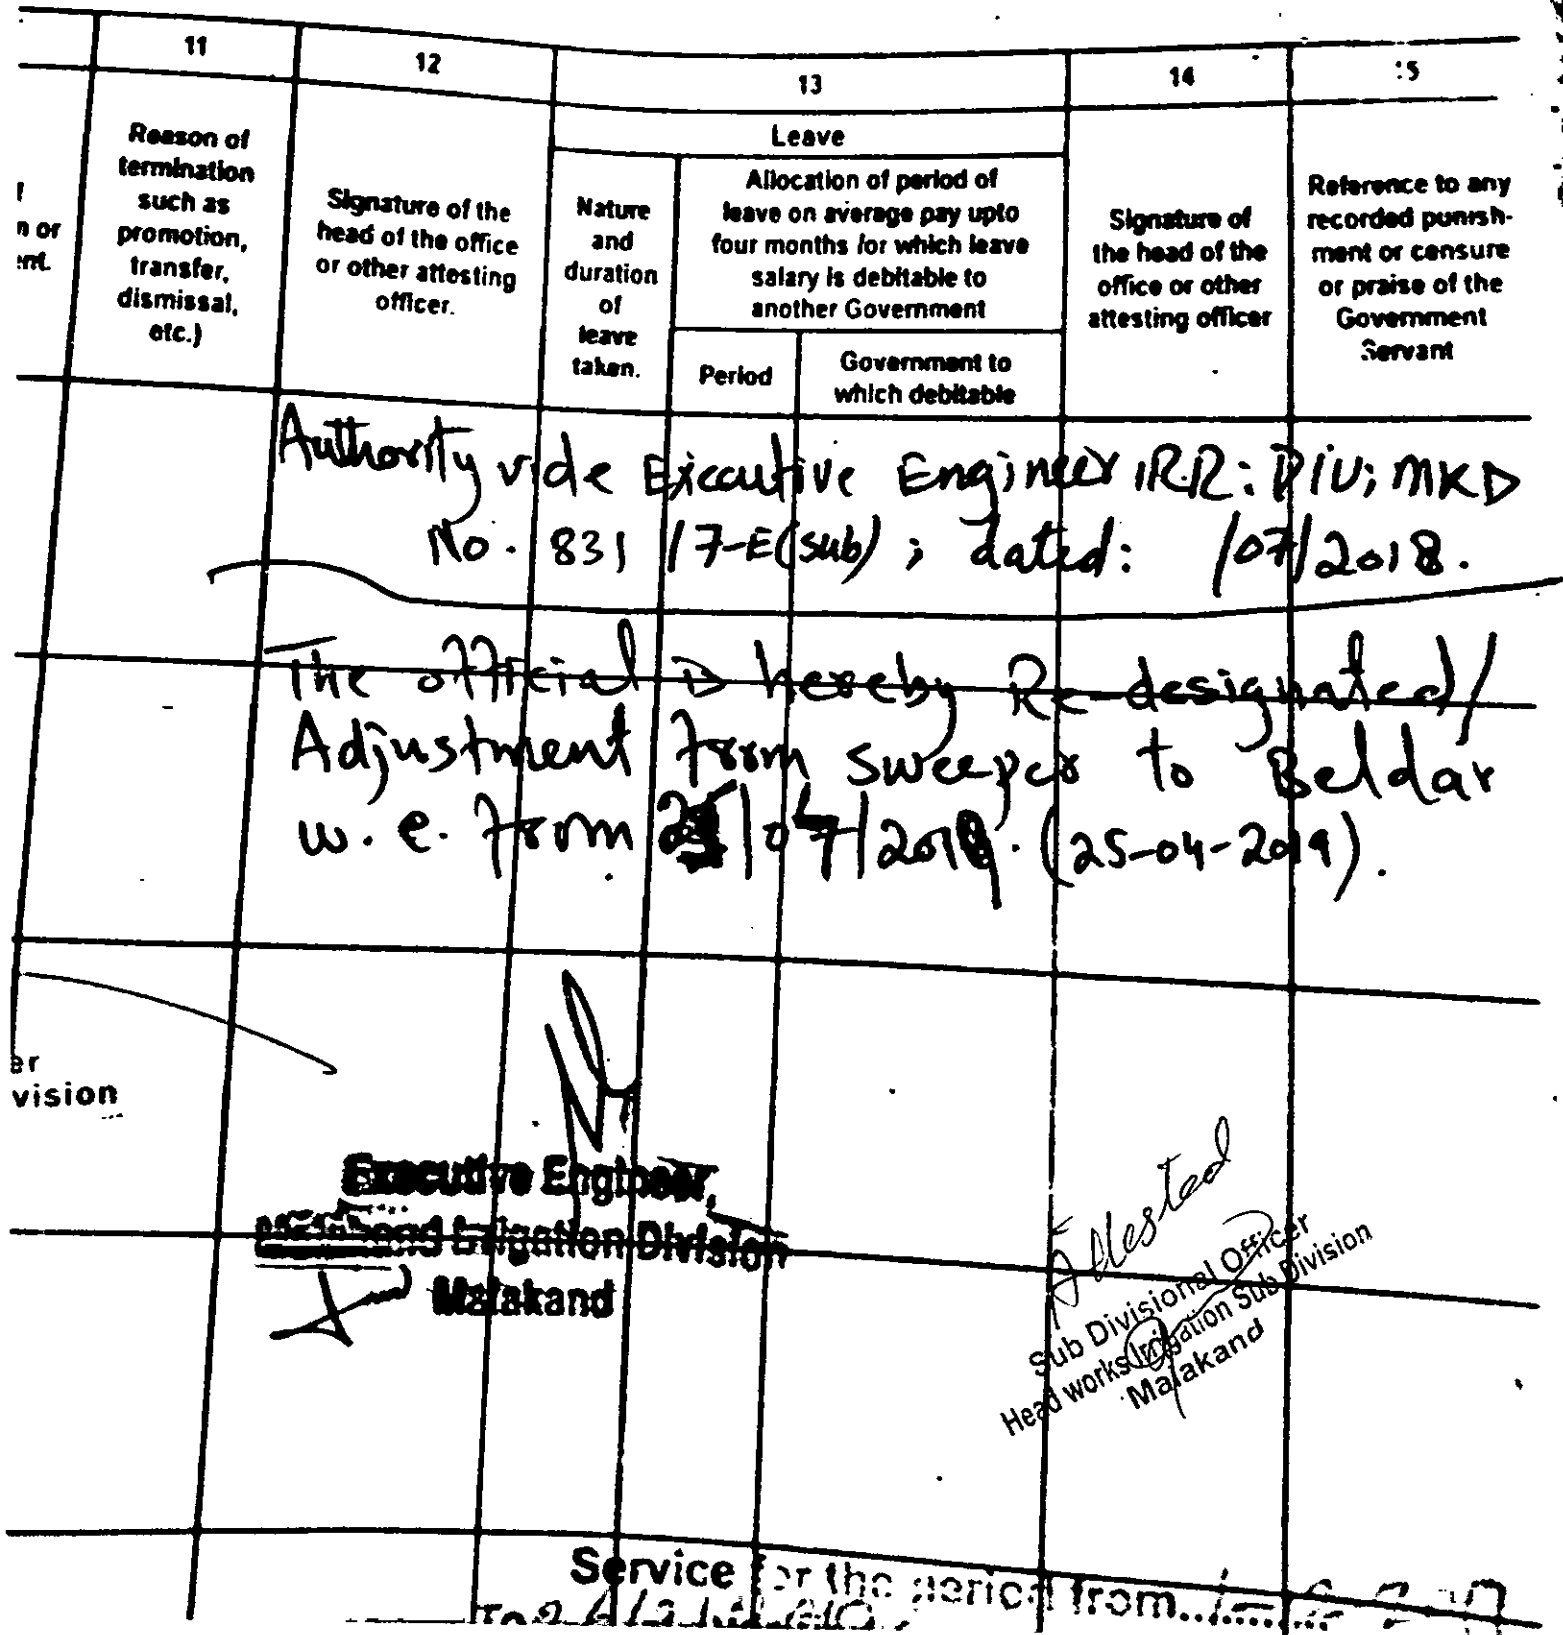 11
12
13
14
15
Reason of
termination
such as
promotion,
transfer,
dismissal,
etc.)
n or
ent.
Signature of the
head of the office
or other attesting
officer.
Leave
Nature
and
duration
of
leave
taken.
Allocation of period of
leave on average pay upto
four months for which leave
salary is debitable to
another Government
Period
Government to
which debitable
Signature of
the head of the
office or other
attesting officer
Reference to any
recorded punish-
ment or censure
or praise of the
Government
Servant
Authority vide Executive Engineer IRR: DIV; MKD
No. 831 /7-E(sub) ; dated: /07/2018.
The official is hereby Re-designated/
Adjustment from sweeper to Beldar
w.e. from /2019. (25-04-2019).
er
vision
Executive Engineer,
Malakand Irrigation Division
Malakand
Attested
Sub Divisional Officer
Head works Irrigation Sub Division
Malakand
Service for the period from
To